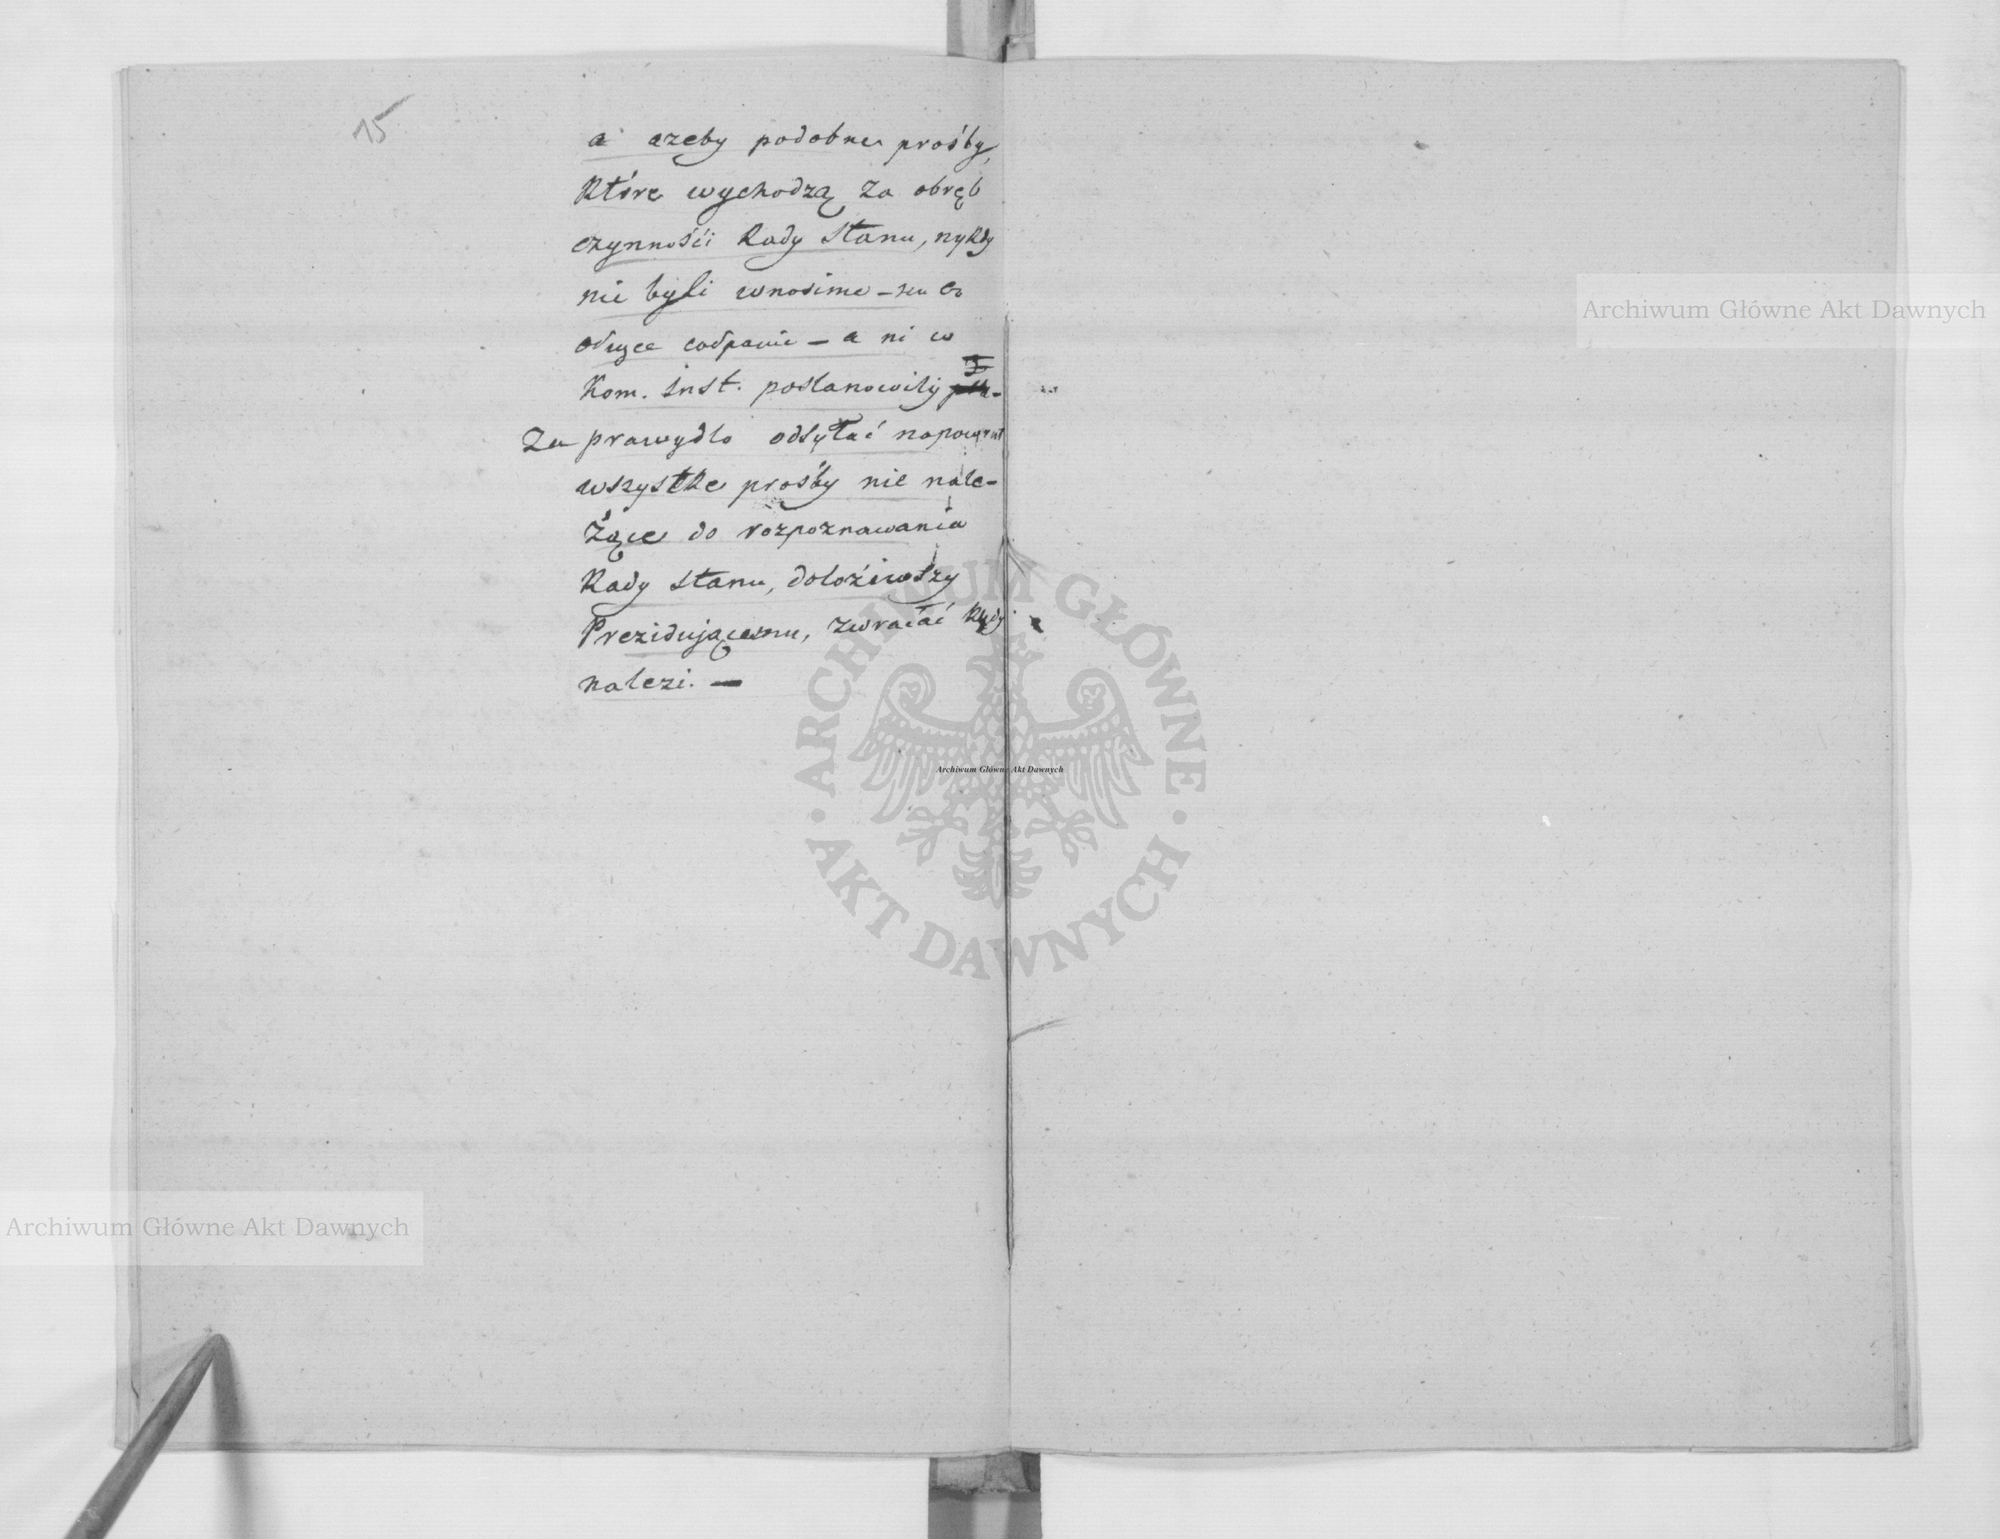 15
a azeby podobne prośby,
Które wychodzą za obręb
czynnośći Rady Stanu, nygdy
nie byli wnosime
a ni w
Kom. Inst. postanowiły
Za prawydlo odsyłać napowrot
wszystke prośby nie nale-
żące do rozpoznawania
Rady Stanu, dolożiwszy
Prezidującemu, zwracać kędy
nalezi. —
Archiwum Główne Akt Dawnych
Archiwum Główne Akt Dawnych
Archiwum Główne Akt Dawnych
ARCHIWUM GŁÓWNE
AKT DAWNYCH